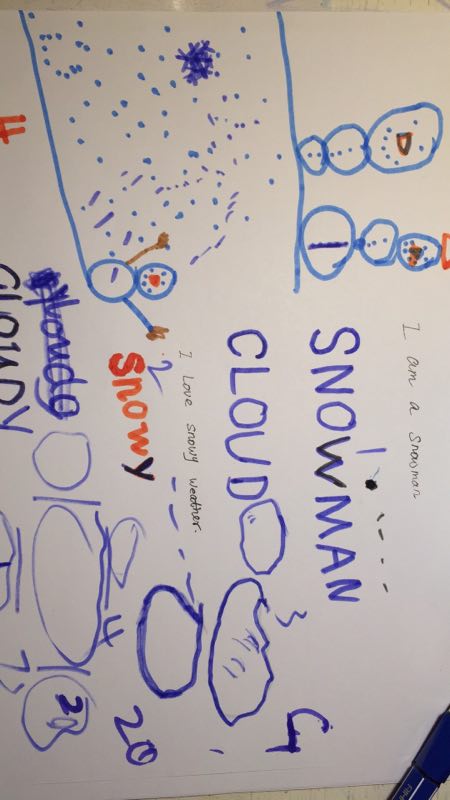 I am a Snowman
SNOWMAN
CLOUD
I Love snowy weather.
2
Snowy
CLOUDY
4
4
20